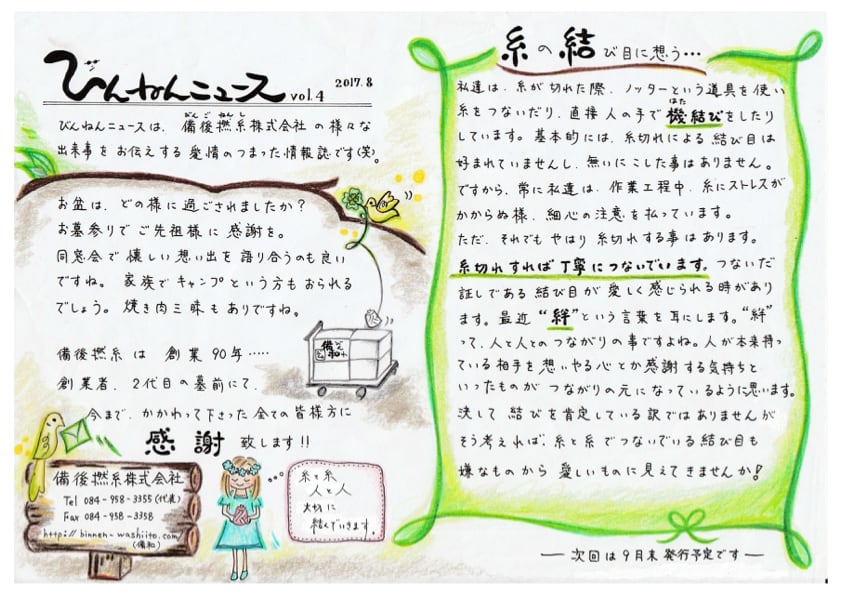 びんねんニュース vol.4 2017.8
びんねんニュースは、備後撚糸株式会社の様々な
びんごねんし
出来事をお伝えする愛情のつまった情報誌です(笑)。
お盆は、どの様に過ごされましたか？
お墓参りでご先祖様に感謝を。
同窓会で懐しい想い出を語り合うのも良い
ですね。家族でキャンプという方もおられる
でしょう。焼き肉三昧もありですね。
備後撚糸は創業90年‥‥‥
創業者、2代目の墓前にて、
今まで、かかわって下さった全ての皆様方に
感謝致します!!
備後撚糸株式会社
Tel 084-958-3355(代表)
Fax 084-958-3358
http://binnen-washiito.com/
(備和)
糸と糸
人と人
大切に
結んでいきます。
糸の結び目に想う…
私達は、糸が切れた際、ノッターという道具を使い
糸をつないだり、直接人の手で機結びをしたり
はた
しています。基本的には、糸切れによる結び目は
好まれていませんし、無いにこした事はありません。
ですから、常に私達は、作業工程中、糸にストレスが
かからぬ様、細心の注意を払っています。
ただ、それでもやはり糸切れする事はあります。
糸切れすれば丁寧につないでいます。つないだ
証しである結び目が愛しく感じられる時があり
ます。最近“絆”という言葉を耳にします。“絆”
って、人と人とのつながりの事ですよね。人が本来持っ
ている相手を想いやる心とか感謝する気持ちと
いったものがつながりの元になっているように思います。
決して結びを肯定している訳ではありませんが
そう考えれば、糸と糸でつないでいる結び目も
嫌なものから愛しいものに見えてきませんか!
―次回は9月末発行予定です―